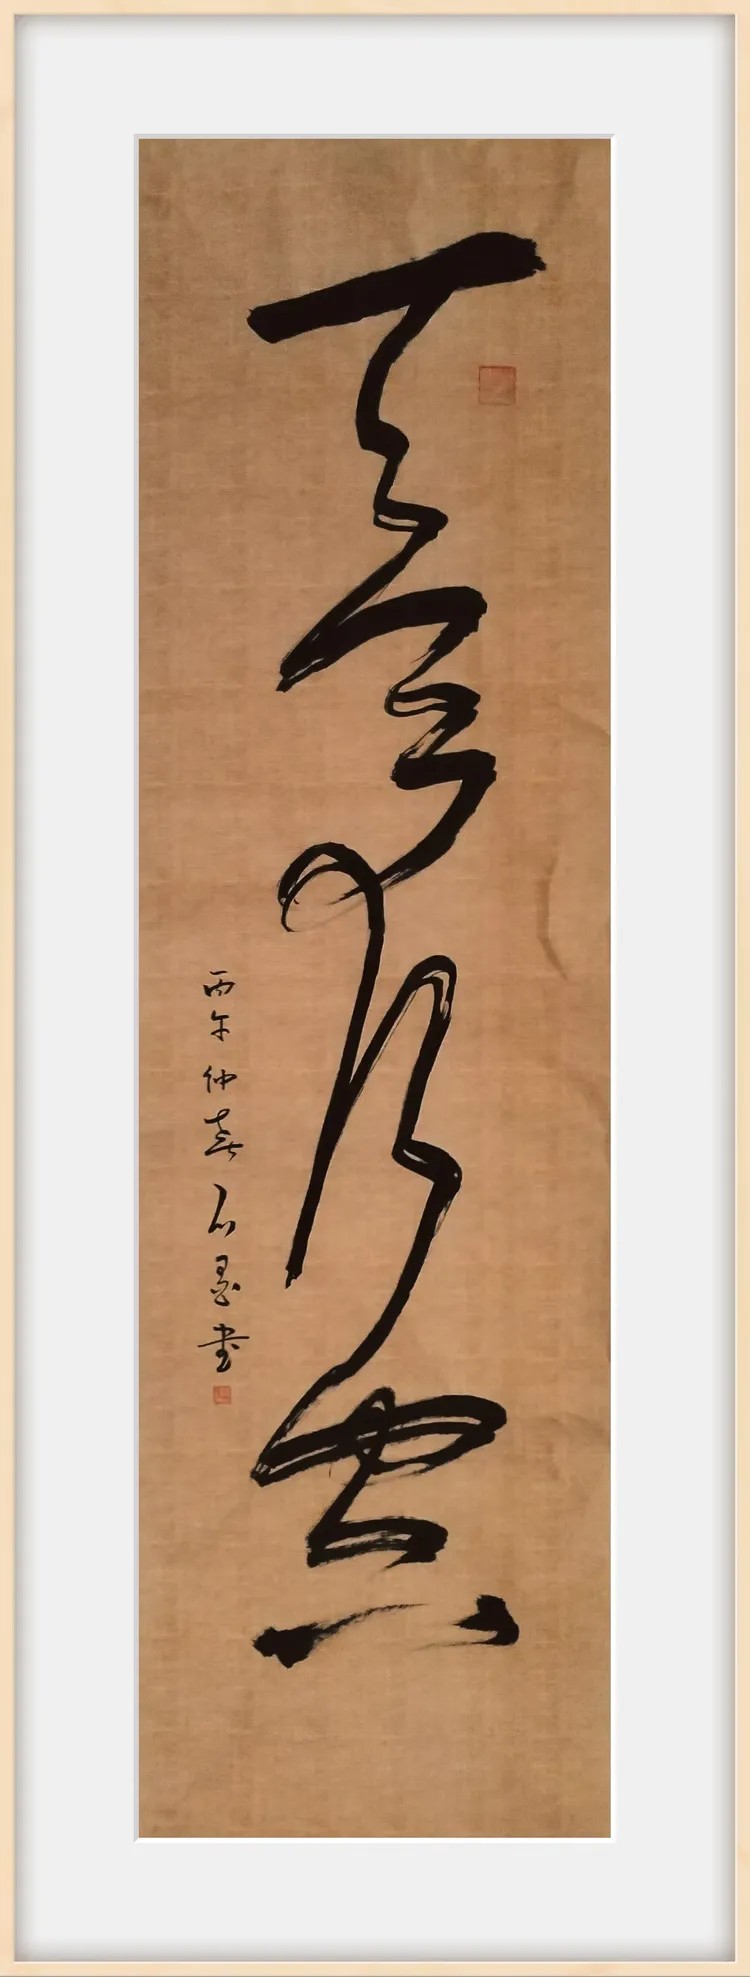 天馬行空
丙午仲春石墨书